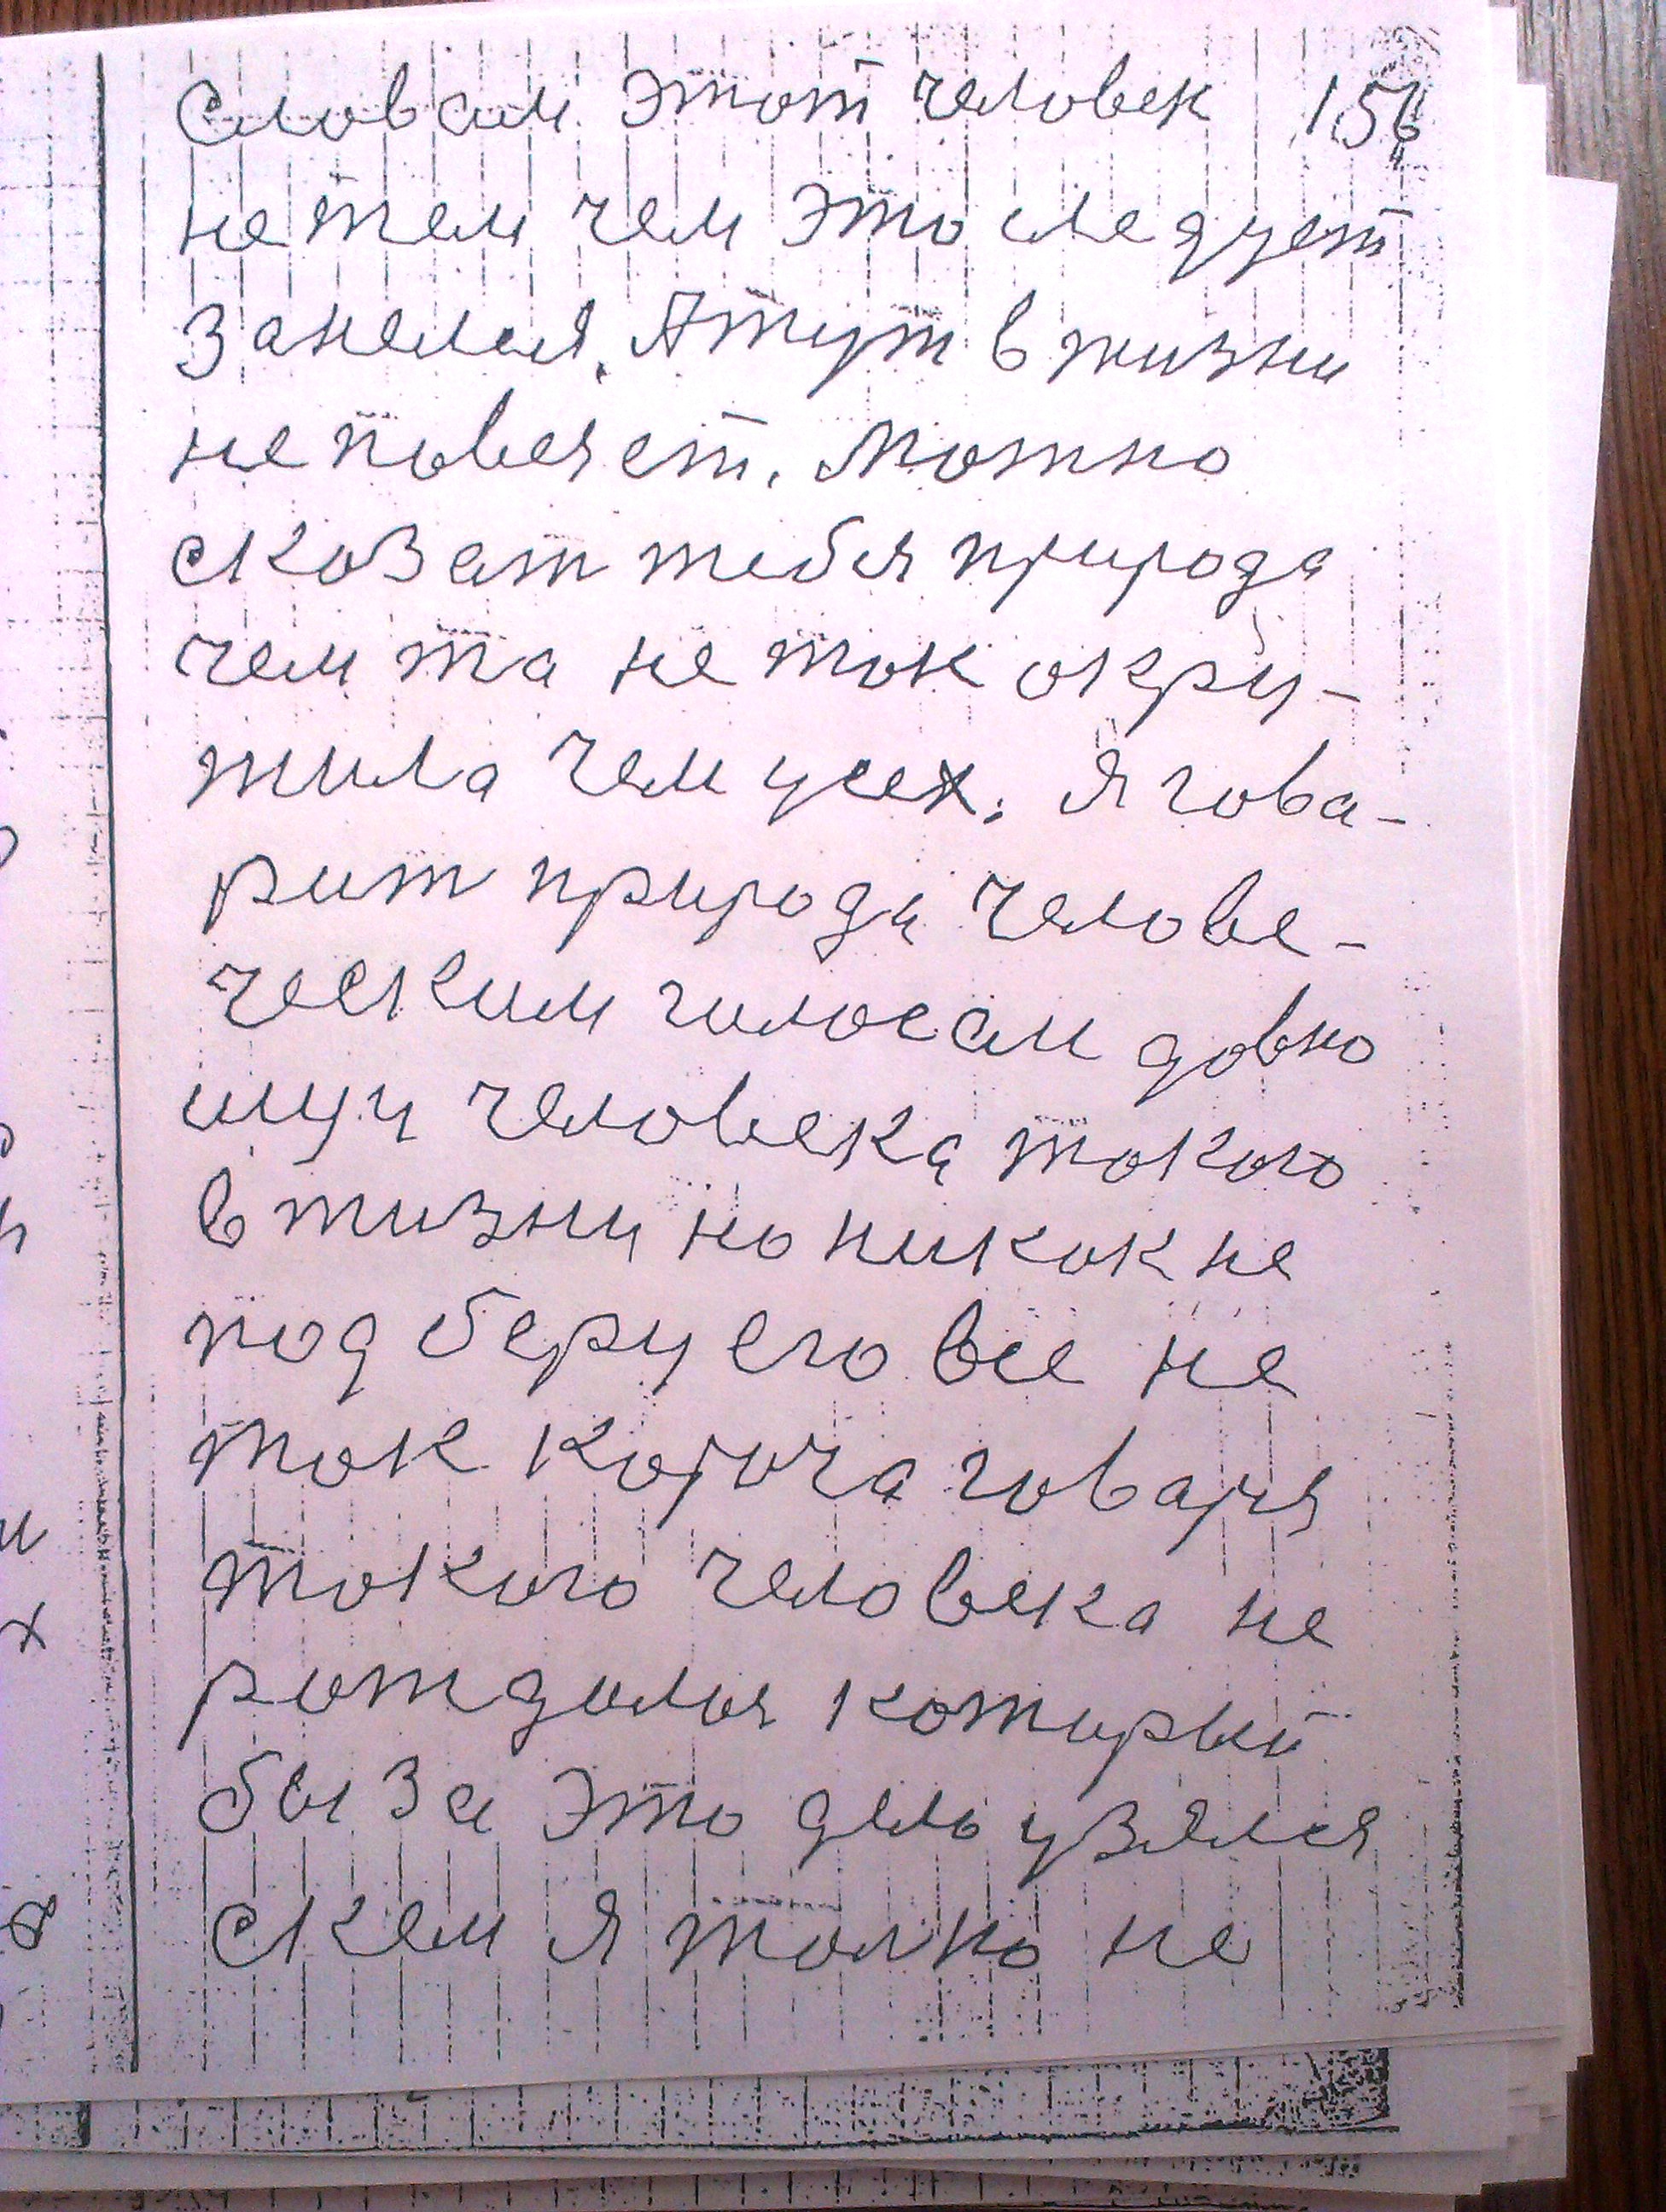 Словам этот человек 156
не тем чем это следует
занелся. А тут в жизни
не повезет. Можно
сказат тебя природа
чем та не ток окру-
жила чем усех. Я гова-
рит природа челове-
ческим голосам довно
ищу человека токого
в жизни но никок не
подберу его все не
ток короча говаря
токого человека не
рождолся каторый
бы за это дело узялся
с кем я толко не